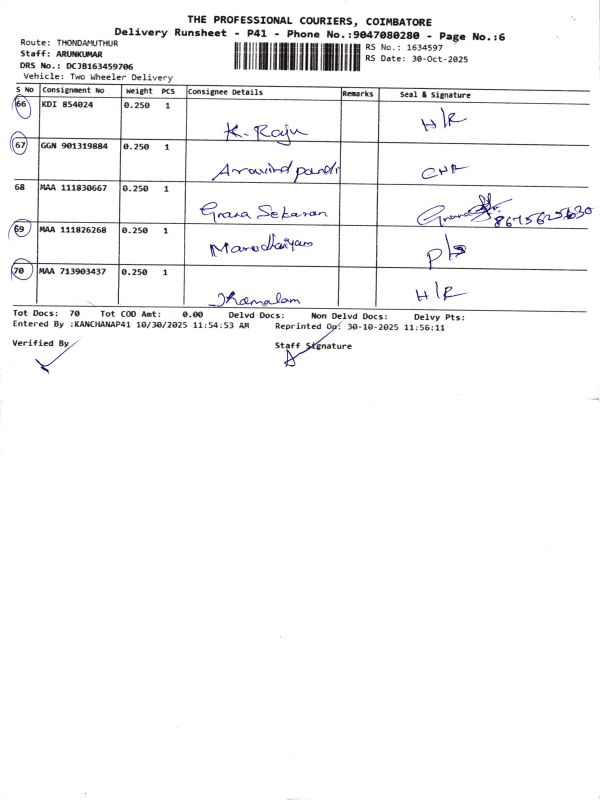 THE PROFESSIONAL COURIERS, COIMBATORE
Delivery Runsheet - P41 - Phone No.:9047080280 - Page No.:6
Route: THONDAMUTHUR
RS No.: 1634597
Staff: ARUNKUMAR
RS Date: 30-Oct-2025
DRS No.: DCJB163459706
Vehicle: Two Wheeler Delivery
S No Consignment No Weight PCS Consignee Details Remarks Seal & Signature
66 KDI 854024 0.250 1
K. Raju H/R
67 GGN 901319884 0.250 1
Aravind pandi
68 MAA 111830667 0.250 1
Grana Sekaran
69 MAA 111826268 0.250 1
P/s
70 MAA 713903437 0.250 1
Kamalam H/R
Tot Docs: 70 Tot COD Amt: 0.00 Delvd Docs: Non Delvd Docs: Delvy Pts:
Entered By :KANCHANAP41 10/30/2025 11:54:53 AM Reprinted On: 30-10-2025 11:56:11
Verified By Staff Signature